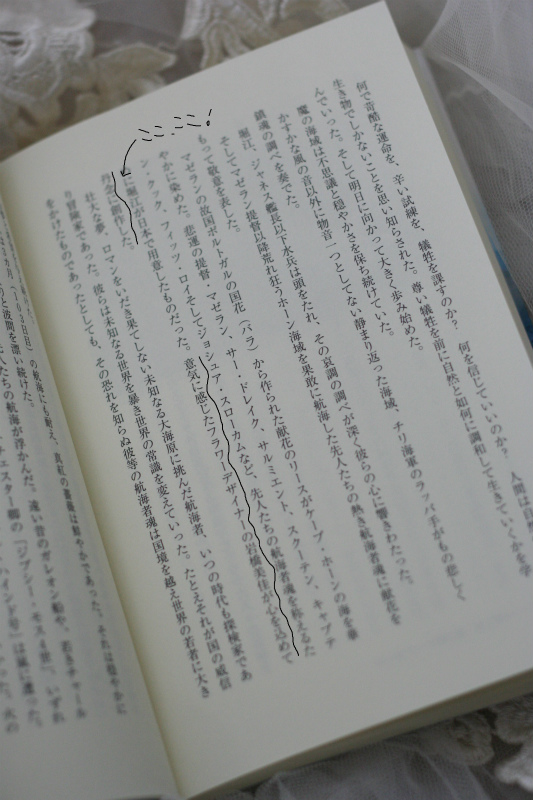 ここ、ここ！
何で苛酷な運命を、辛い試練を、犠牲を課すのか？　何を信じていいのか？　人間は自然
生き物でしかないことを思い知らされた。尊い犠牲を前に自然と如何に調和して生きていくかを学
んでいった。そして明日に向かって大きく歩み始めた。
魔の海域は不思議と穏やかさを保ち続けていた。
かすかな風の音以外に物音一つとしてない静まり返った海域、チリ海軍のラッパ手がもの悲しく
鎮魂の調べを奏でた。
堀江、ジャネス艦長以下水兵は頭をたれ、その哀調の調べが深く彼らの心に響きわたった。
そしてマゼラン提督以降荒れ狂うホーン海域を果敢に航海した先人たちの熱き航海者魂に献花を
もって敬意を表した。
マゼランの故国ポルトガルの国花（バラ）から作られた献花のリースがケープ・ホーンの海を華
やかに染めた。悲運の提督・マゼラン、サー・ドレイク、サルミエント、スクーテン、キャプテ
ン・クック、フィッツ・ロイそしてジョシュア・スローカムなど、先人たちの航海者魂を称えるた
に堀江が日本で用意したものだった。意気に感じたフラワーデザイナーの岩橋美佳が心を込めて
丹念に創作した。
壮大な夢、ロマンをいだき果てしない未知なる大海原に挑んだ航海者、いつの時代も探検家であ
り冒険家であった。彼らは未知なる世界を暴き世界の常識を変えていった。たとえそれが国の威信
をかけたものであったとしても、その恐れを知らぬ彼等の航海者魂は国境を越え世界の若者に大き
の航海にも耐え、真紅の薔薇は鮮やかであった。それは穏やかに
と波間を漂い続けた。
たちの航海が浮かんだ。遠い昔のガレオン船や、若きチャール
チェスター卿の『ジプシー・モス４世』、いずれ
ハインド号』は嵐に遭った。